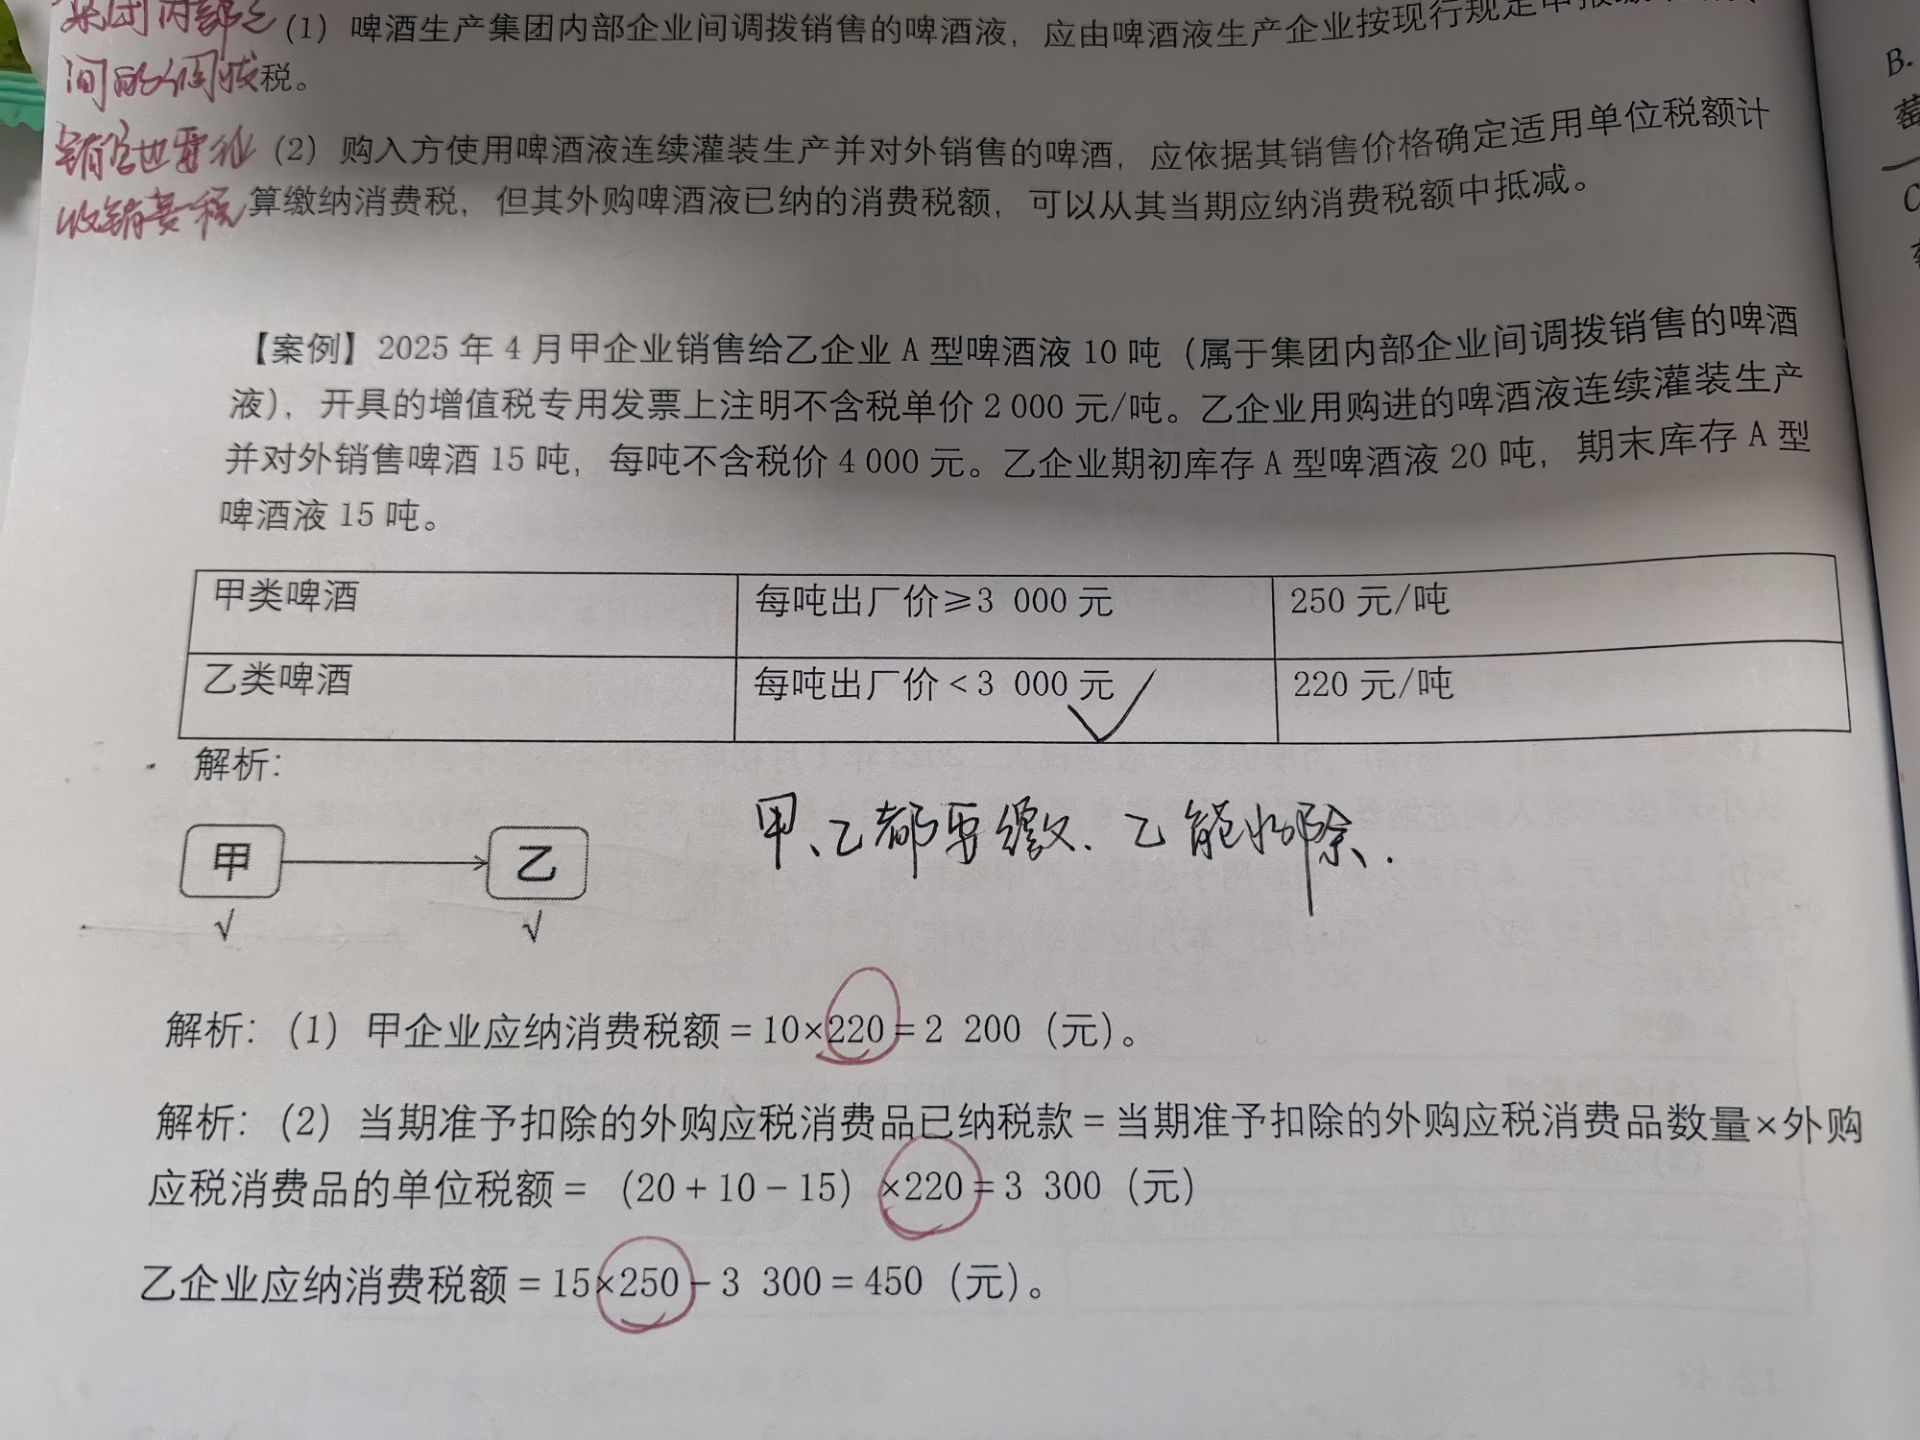 集团内部之
(1) 啤酒生产集团内部企业间调拨销售的啤酒液，应由啤酒液生产企业按现行规定申报缴
间的调拨税。
销售也要征 (2) 购入方使用啤酒液连续灌装生产并对外销售的啤酒，应依据其销售价格确定适用单位税额计
收销费税 算缴纳消费税，但其外购啤酒液已纳的消费税额，可以从其当期应纳消费税额中抵减。
【案例】2025 年 4 月甲企业销售给乙企业 A 型啤酒液 10 吨（属于集团内部企业间调拨销售的啤酒
液），开具的增值税专用发票上注明不含税单价 2 000 元/吨。乙企业用购进的啤酒液连续灌装生产
并对外销售啤酒 15 吨，每吨不含税价 4 000 元。乙企业期初库存 A 型啤酒液 20 吨，期末库存 A 型
啤酒液 15 吨。
甲类啤酒 每吨出厂价≥3 000 元 250 元/吨
乙类啤酒 每吨出厂价<3 000 元 220 元/吨
解析：
甲、乙都要缴. 乙能扣除.
甲 乙
√ √
解析：（1）甲企业应纳消费税额＝10×220＝2 200（元）。
解析：（2）当期准予扣除的外购应税消费品已纳税款＝当期准予扣除的外购应税消费品数量×外购
应税消费品的单位税额＝（20＋10－15）×220＝3 300（元）
乙企业应纳消费税额＝15×250－3 300＝450（元）。
B.
C